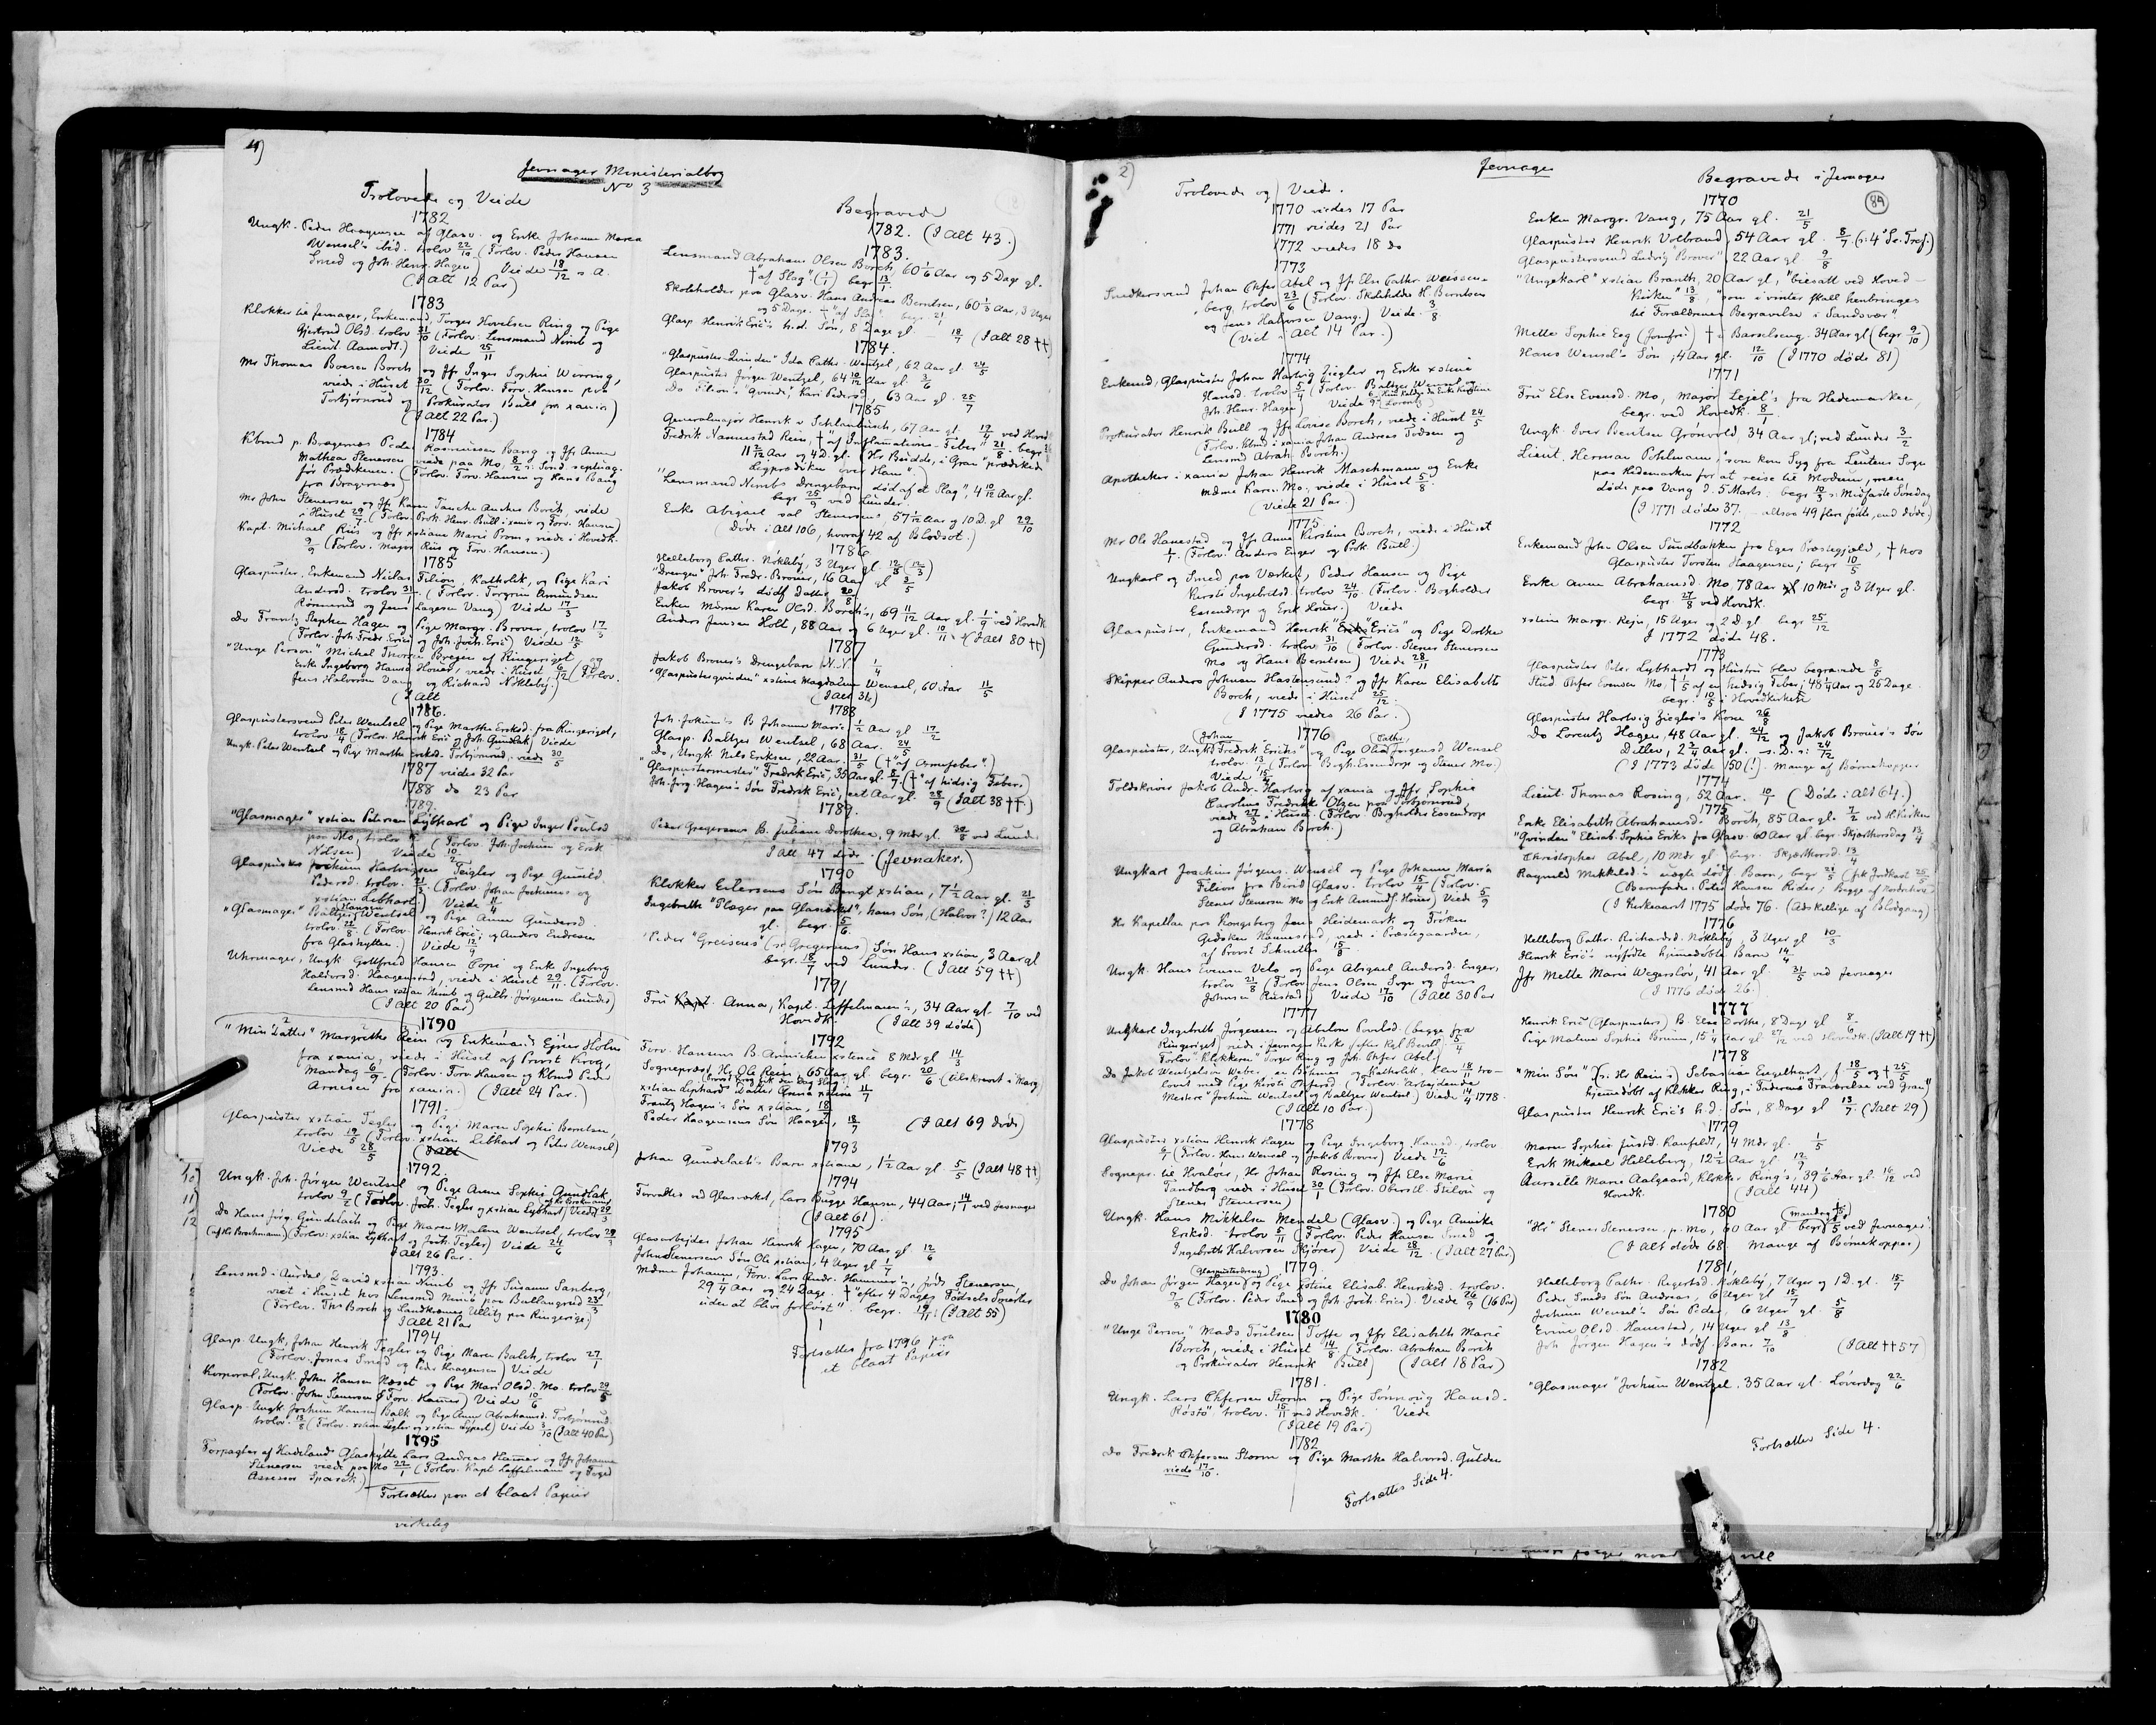 4)
Jevnager Ministerialbog
No 3
Trolovede og Viede
1782
Ungk. Peder Haagensen af Glasv. og Enke Johanne Marea
Wensel's ibid. trolov 22/10 (Forlov. Peder Hansen
Smed og Joh. Henr. Hagen) Viede 18/12 s. A.
(I alt 12 Par)
1783
Klokker til Jevnager, Enkemand, Torger Hovelsen Ring og Pige
Gjertrud Olsd. trolov 31/10 (Forlov. Lensmand Nimb og
Lieut. Aamodt.) Viede 25/11
Mr Thomas Boesen Borch og Jfr Inger Sophie Wirring,
viede i Huset 30/12 (Forlov. Forv. Hansen paa
Torbjørnrud og Prokurator Bull fra xania)
(I alt 22 Par.)
1784
Kbmd p. Bragernæs Peder Rasmussen Bang og Jfr. Anne
Mathea Stenersen viede paa Mo, 8/2 s: Sønd. septuag.
før Prædikenen. (Forlov. Forv. Hansen og Hans Bang
fra Bragernæs)
Mr John Stenersen og Jfr Karen Tanche Ancher Borch, viede
i Huset 29/7. (Forlov. Prok. Henr. Bull i xania og Forv. Hansen)
Kapt. Michael Riis og Jfr xstiane Marie Prom, viede i Hovedk.
9/9 (Forlov. Major Riis og Forv. Hansen.)
1785
Glaspuster, Enkemand Niclas Filion, Katholik, og Pige Kari
Andersd. trolov 31/ (Forlov. Torgrim Amundsen
Rønnerud og Jens Lagesen Vang) Viede 17/3
Do Frantz Stephen Hagen og Pige Margr. Brover, trolov 17/3
(Forlov. Joh. Fredr. Eric og Joh. Joch. Eric) Viede 12/5
"Unge Person" Michel Thorsen Bregen af Ringeriget og
Enke Ingeborg Hansd Houer, viede i Huset 6/12 (Forlov.
Jens Halvorsen Vang og Richard Nøkleby.)
(I Alt
1786.
Glaspustersvend Peter Wentsel og Pige Marthe Eriksd. fra Ringeriget,
trolov 18/4 (Forlov. Henrik Eric og Joh. Gundelak) Viede
Ungk. Peter Wentsel og Pige Marthe Eriksd. Torbjørnrud, viede 30/5
1787 viedes 32 Par
1788 do 23 Par
1789.
"Glasmager" xstian Petersen Lybhart" og Pige Inger Poulsd
paa Mo, trolov (Forlov. Joh. Jochum og Erik
Nilsen) Viede 10/2
Glaspuster Jochum Hartvigsen Teigler og Pige Gunild
Pedersd. trolov. 21/3 (Forlov. Johan Jochums og
xstian Lebhart.) Viede 11/4
"Glasmager" Baltzer Hansen Wentsel og Pige Anne Gundersd
trolov. 22/8 (Forlov. Henrik Eric; og Anders Endresen
fra Glashytten.) Viede 12/9
Uhrmager, Ungk Gottfried Hansen Popi og Enke Ingeborg
Halvorsd. Haagenstad, viede i Huset 29/11. (Forlov.
Lensmd Hans xstian Nimb og Gulbr. Jørgensen Lunder)
(I Alt 20 Par)
1790
"Min Datter" Margrethe Rein og Enkemand Ejner Holm
fra xania, viede i Huset af Provst Krog,
Mandag 6/9 (Forlov. Forv Hansen og Kbmd Peder
Arnesen fra xania.) (I alt 24 Par.)
1791.
Glaspuster xstian Tegler og Pige Maren Sophie Berntsen,
trolov 19/5 (Forlov. xstian Lebhart og Peter Wensel)
Viede 28/5 (I alt
1792.
10) Ungk. Joh. Jörgen Wentsel og Pige Anne Sophie Gundlak
11) trolov 9/2 (Forlov. Joch. Tegler og xstian Lybhart) Viede 29/3
12 Do Hans Jörg. Gundelach og Pige Maren Malene Wentsel, trolov 29/3
(Forlov: xstian Lybhart og Joch: Tegler) Viede 24/6
I alt 26 Par.
1793.
Lensmd i Aurdal, David xstian Nimb og Jfr Susann Sanberg,
viet i Huset hos Lensmd Nimb paa Bullangrud 23/3
(Forlov. Ths Borch og Landkræmer Ullitz paa Ringerige.)
I alt 21 Par
1794
Glasp. Ungk. Johan Henrik Tegler og Pige Maren Balch, trolov 27/1
(Forlov. Jonas Smed og Peder Haagensen) Viede
Korporal, Ungk. John Hansen Næset og Pige Mari Olsd. Mo. trolov 29/5
(Forlov. John Stenersen & Forv. Hammer) Viede 10/6
Glasp. Ungk. Jochum Hansen Balk og Pige Anne Abrahamsd. Torbjørnrud
trolov. 13/8 (Forlov. xstian Tegler og xstian Lypert) Viede 3/10 (I alt 40 Par)
1795
Forpagter af Hadelands Glashytte Lars Andreas Hammer og Jfr Johanne
Stenersen viede paa Mo 22/1 (Forlov. Kapt Leffelmann og Foged
Assessor Sparck.)
Fortsættes paa et blaat Papiir
virkelig
Begravede
1782. (I Alt 43.)
1783.
Lensmand Abraham Olsen Borch, 60 1/6 Aar og 5 Dage gl.
† "af Slag". (1/1) begr 13/1.
Skoleholder paa Glasv. Hans Andreas Berntsen, 60 1/3 Aar, 3 Uger
og 5 Dage. † "af Slag" begr. 21/1
Glasp Henrik Eric's h.d. Søn, 8 Dage gl 18/7 (I alt 28 ††)
1784.
"Glaspuster-Qvinden" Ida Cathr. Wentzel, 62 Aar gl 24/5
Glaspuster Jørgen Wentzel, 64 10/12 Aar gl 3/6
Do Filion's "Qvinde", Kari Pedersd, 63 Aar gl. 25/7
1785
Generalmajor Henrik v Schlanbusch, 67 Aar gl. 17/4 ved Hovedk
Fredrik Nannestad Rein, † "af Inflamations-Feber" 21/8. begr
11 2/12 Aar og 4 D. gl. (Hr Budde, i Gran "prædiked
Ligprædiken over Ham".)
"Lensmand Nimbs Drengebarn død af et Slag", 4 10/12 Aar gl.
begr 25/9 ved Lunder.
Enke Abigael sal. Stenersens, 57 1/12 Aar og 10 D. gl 29/10
(Døde i alt 106, hvoraf 42 af Blodsot.)
1786
Helleborg Cathr. Nökleby, 3 Uger gl 12/3 (12/3)
"Drengen" Joh. Fredr. Brouer, 16 Aar gl 3/5
Jakob Brover's dödf Datter 20/8
Enken Mdme Karen Olsd. Borch's, 69 11/12 Aar gl. 1/9 "ved" Hovedk
Anders Jensen Holt, 88 Aar og 6 Uger gl. 10/11 (I alt 80 ††)
1787
Jakob Brouer's Drengebarn N.N. 1/4
"Glaspusterqvinden" xstine Magdalene Wensel, 60 Aar 11/5
(I alt 34)
1788
Joh. Jokum's B Johanne Mari 1/2 Aar gl 17/2
Glasp. Baltzer Wentsel, 68 Aar. 24/5
Do, Ungk Nils Eriksen, 22 Aar. 31/5 († "af Armefeber".)
"Glaspustermester" Fredrik Eric, 35 Aar gl. 8/7. († "af hidsig Feber.)
Joh. Jörg. Hagen's Søn Fredrik Eric, eet Aar gl. 28/9 (I alt 38 ††)
1789.
Peder Gregersens B. Juliane Dorothea, 9 mdr gl. 30/8 ved Lunder
I alt 47 døde. (Jevnaker.)
1790
Klokker Eilersens Søn Bengt xstian, 7 1/2 Aar gl. 21/3
Ingebreth "Plæger paa Glasværket", hans Søn, (Halvor?) 12 Aar
gl. begr. 5/6.
"Peder "Greisens" (s: Gregersens) Søn Hans xstian, 3 Aar gl
begr. 18/7 ved Lunder. (I Alt 59 ††)
1791
Fru Kapt. Anna, Kapt. Leffelmann's, 34 Aar gl. 7/10 ved
Hovedk. (I alt 39 døde)
1792
Forv. Hansens B. Annichen xstence 8 Mdr gl 14/3
Sognepræst Hr Ole Rein, 65 Aar gl. begr. 20/6 (tilskrevet i Marg
xstian Liephard's Datter Anna xstine 11/7
Frantz Hagen's Søn xstian, 18/7
Peder Haagensens Søn Haagen, 18/7 (I alt 69 døde)
1793
Johan Gundelach's Barn xstiane, 1 1/2 Aar gl. 5/5 (I alt 48 ††)
1794
Forvalter ved Glasværket, Lars Bugge Hansen, 44 Aar, 14/1 ved Jevnager
(I alt 61)
1795
Glasarbejder Johan Henrik Hagen, 70 Aar gl 12/6
John Stenersens Søn Ole xstian, 4 Uger gl 1/7
Mdme Johanne, Forv. Lars Andr. Hammer's, født Stenersen,
29 1/4 Aar og 24 Dage. † "efter 4 Dages Födsels Smerter
uden at blive forløst". begr. 19/11. (I alt 55)
Fortsættes fra 1796 paa
et blaat Papiir
2)
Jevnager
Trolovede og Viede.
1770 viedes 17 Par
1771 viedes 21 Par
1772 viedes 18 do
1773
Snedkersvend Johan Chrfer Abel og Jfr Elen Cathr. Weissen-
berg, trolov 23/6 (Forlov. Skoleholder H. Berntsen
og Jens Halvorsen Vang.) Viede 3/8
(Viet i Alt 14 Par.)
1774
Enkemd, Glaspuster Johan Hartvig Ziegler og Enke xstine
Hansd. trolov 5/4 (Forlov. Baltzer Wensel og
Joh. Henr. Hagen) Viede
Prokurator Henrik Bull og Jfr Lovise Borch, viede i Huset 24/5
(Forlov. Kbmd i xania Johan Andreas Todsen og
Lensmd Abrah. Borch.)
Apotheker i xania Johan Henrik Maschmann og Enke
mdme Karen Mo, viede i Huset 5/8.
(Viede 21 Par)
1775.
Mr Ole Hanestad og Jfr Anne Kirstine Borch, viede i Huset
(Forlov. Anders Enger og Prok. Bull.)
Ungkarl og Smed paa Værket, Peder Hansen og Pige
Kirsti Ingebritsd. trolov 24/10 (Forlov. Bogholder
Essendrop og Erik Houer.) Viede
Glaspuster, Enkemand Henrik "Eriks" Eric's" og Pige Dorthe
Gundersd. trolov 31/10 (Forlov. Stener Stenersen
Mo og Hans Berntsen) Viede 28/11
Skipper Anders Johnsen Haslensund? og Jfr Karen Elisabeth
Borch, viede i Huset 25/12.
(I 1775 viedes 26 Par.)
1776
Glaspuster, Ungk Johan Fredrik Eriks" og Pige Olea Cathr. Jørgensd Wensel
trolov. 13/1 (Forlov. Bogh. Essendrop og Stener Mo.)
Viede 15/4
Toldskriver Jakob Andr. Hartvig af xania og Jfr Sophie
Caroline Fredrikke Olgen paa Torbjørnrud,
viede 27/3 i Huset (Forlov. Bogholder Essendrop
og Abraham Borch.)
Ungkarl Joachim Jørgens. Wensel og Pige Johanne Maria
Filion fra Birid Glasv. trolov 15/4 (Forlov.
Stener Stenersen Mo og Erik Amunds. Houer) Viede 5/9
Hr Kapellan paa Kongsberg Jens Heidemark og Frøken
Gedsken Nannestad, viede i Præstegaarden,
af Provst Schnitler 15/8
Ungk. Hans Evensen Velo og Pige Abigael Andersd. Enger,
trolov 21/8 (Forlov Jens Olsen Svge og Jens
Johnsen Rustad) Viede 17/10 (I alt 30 Par
1777
Ungkarl Ingebreth Jørgensen og Abelone Povelsd. (begge fra
Ringeriget, viede i Jevnager Kirke efter Kgl Bevill. 5/4
Forlov "Klokkeren" Torger Ring og Joh. Chrfer Abel.
Do Jakob Wentzelsen Weber en Bøhmer og Katholik, blev 18/11 tro-
lovet med Pige Kirsti Chrfersd. (Forlov. "Arbejdende
Mestere" Jochum Wentsel og Baltzer Wentsel.) Viede 14/4 1778.
(I alt 10 Par.)
1778
Glaspuster xstian Henrik Hagen og Pige Ingeborg Hansd. trolov
6/4 (Forlov. Hans Wensel og Jakob Brover) Viede 12/6
Sognepr. til Hvaløer, Hr Johan Rosing og Jfr Else Marie
Tandberg viede i Huset 30/1 (Forlov. Oberstl. Stilow og
Stener Stenersen)
Ungk. Hans Mikkelsen Mendel (Glasv.) og Pige Annike
Eriksd. trolov 5/11 (Forlov. Peder Hansen Smed og
Ingebreth Halvorsen Skjører) Viede 28/12. (I alt 27 Par)
1779.
Do Johan Jörgen Hagen (Glaspusterdreng) og Pige Kirstine Elisab. Henriksd. trolov.
9/8 (Forlov. Peder Smed og Joh. Joch. Eric) Viede 26/9 (16 Par)
1780
"Unge Person" Mads Truelsen Toffe og Jfr Elisabeth Marie
Borch, viede i Huset 14/8 (Forlov. Abraham Borch
og Prokurator Henrik Bull) (I alt 18 Par)
1781.
Ungk. Lars Chrfersen Storm og Pige Sønnoug Hansd.
Røstø" trolov. 15/11 ved Hovedk. Viede
(I alt 19 Par)
1782
Do Fredrik Chrfersen Storm og Pige Marthe Halvorsd. Gulden
viede 17/10.
Fortsættes Side 4.
Begravede i Jevnager
89
1770
Enken Margr. Vang, 75 Aar gl. 21/5
Glaspuster Henrik Volbrand, 54 Aar gl 8/7. (s: 4 Se. Tref.)
Glaspustersvend Ludvig "Brover", 22 Aar gl 9/8
"Ungekarl" xstian Branth, 20 Aar gl, "biesatt ved Hoved-
kirken" 13/8, "som i vinter skall henbringes
til Forældrenes Begravelse i Sandsvær"
Mette Sophie Eeg (Jomfru) † i Barselseng. 34 Aar gl (begr 9/10)
Hans Wensel's Søn, 4 Aar gl. 12/10 (I 1770 døde 81)
1771
Fru Else Evensd. Mo, Major Lejel's fra Hedemarken,
begr. ved Hovedk. 8/1.
Ungk. Iver Bentsen Grønvold, 34 Aar gl; ved Lunder 3/2
Lieut. Herman Pohlmann, "som kom Syg fra Leutens Sogn
paa Hedemarken for at reise til Modum, men
døde paa Vang d. 5 Marts. begr. 10/3 s: Midfaste Søndag
(I 1771 døde 37. - altsaa 49 flere fødte, end døde.)
1772
Enkemand John Olsen Sundbakken fra Eger Præstegjæld, † hos
Glaspuster Torsten Haagensen; begr 10/5
Enke Anne Abrahamsd. Mo, 78 Aar 10 Mdr og 3 Uger gl.
begr. 27/8 ved Hovedk.
xstine Margr. Rejn, 15 Uger og 2 D gl begr 25/12
I 1772 døde 48.
1773
Glaspuster Peter Lybhardt og Hustru blev begravede 8/5
Stud Chrfer Evensen Mo, † 1/5 af en hidsig Feber, 48 1/4 Aar og 25 Dage.
begr. 10/5 i Hovedkirken
Glaspuster Hartvig Ziegler's Kone 26/8
Do Lorentz Hagen, 48 Aar gl. 24/12 og Jakob Brouer's Søn
Ditlev, 2 3/4 Aar gl. - s. D. s: 24/12
(I 1773 døde 150 (!) - mange af Børnekopper
1774
Lieut. Thomas Rosing, 52 Aar. 10/1 (Døde i alt 64.)
1775
Enke Elisabeth Abrahamsd. Borch, 85 Aar gl. 7/2 ved H.kirken
"Qvinden" Elisab. Sophie Eriks fra Glasv. 60 Aar gl. begr. Skjærthorsdag 13/4
Christopher Abel, 10 Mdr gl. begr. Skjærthorsd. 13/4
Ragnild Mikkelsd.s uægte dödf Barn, begr 21/5 (fik Jordkast 25/5
(Barnefader Peter Hansen Reder; Begge af Nordenhov)
(I Kirkeaaret 1775 døde 76. (Adskillige af Blodgang)
1776
Helleborg Cathr. Richardsd. Nökleby, 3 Uger gl 10/3
Henrik Eric's nyfödte hjemmedøbte Barn 14/4
Jfr Mette Marie Wegersløv, 41 Aar gl. 31/5 ved Jevnager
(I 1776 døde 26.)
1777
Henrik Eric (Glaspusters) B. Else Dorthe, 8 Dage gl 8/6
Pige Malene Sophie Bruun, 15 1/4 Aar gl 27/12 ved Hovedk. (I alt 19 ††)
1778
"Min Søn" (s: Hr Rein's) Sebastian Engelhart, f 18/5 og † 25/5
hjemmedøbt af Klokker Ring, i Faderens Fraværelse ved Gran"
Glaspuster Henrik Eric's h.d. Søn, 8 Dage gl 13/7. (I alt 29)
1779
Maren Sophie Justsd. Ranfeldt, 4 Mdr gl. 1/5
Erik Mikael Helleberg, 12 1/2 Aar gl 12/9
Aurselle Marie Aalgaard, Klokker Ring's, 39 1/6 Aar gl. 16/12 ved
Hovedk. (I alt 44)
1780
"Hr" Stener Stenersen, p. Mo, 60 Aar gl begr 15/5 ved Jevnager
(I alt døde 68. Mange af Børnekopper)
1781,
Helleborg Cathr. Regertsd. Nökleby, 7 Uger og 1 D. gl. 15/7
Peder Smeds Søn Andreas, 6 Uger gl 15/7
Jochum Wensel's Søn Peder, 6 Uger gl. 5/8
Evine Olsd. Hanestad, 14 Uger gl 13/8
Joh Jørgen Hagen's dödf. Barn 7/10 (I alt †† 57)
1782
"Glasmager" Jochum Wentzel, 35 Aar gl. Løverdag 22/6
Fortsættes Side 4.